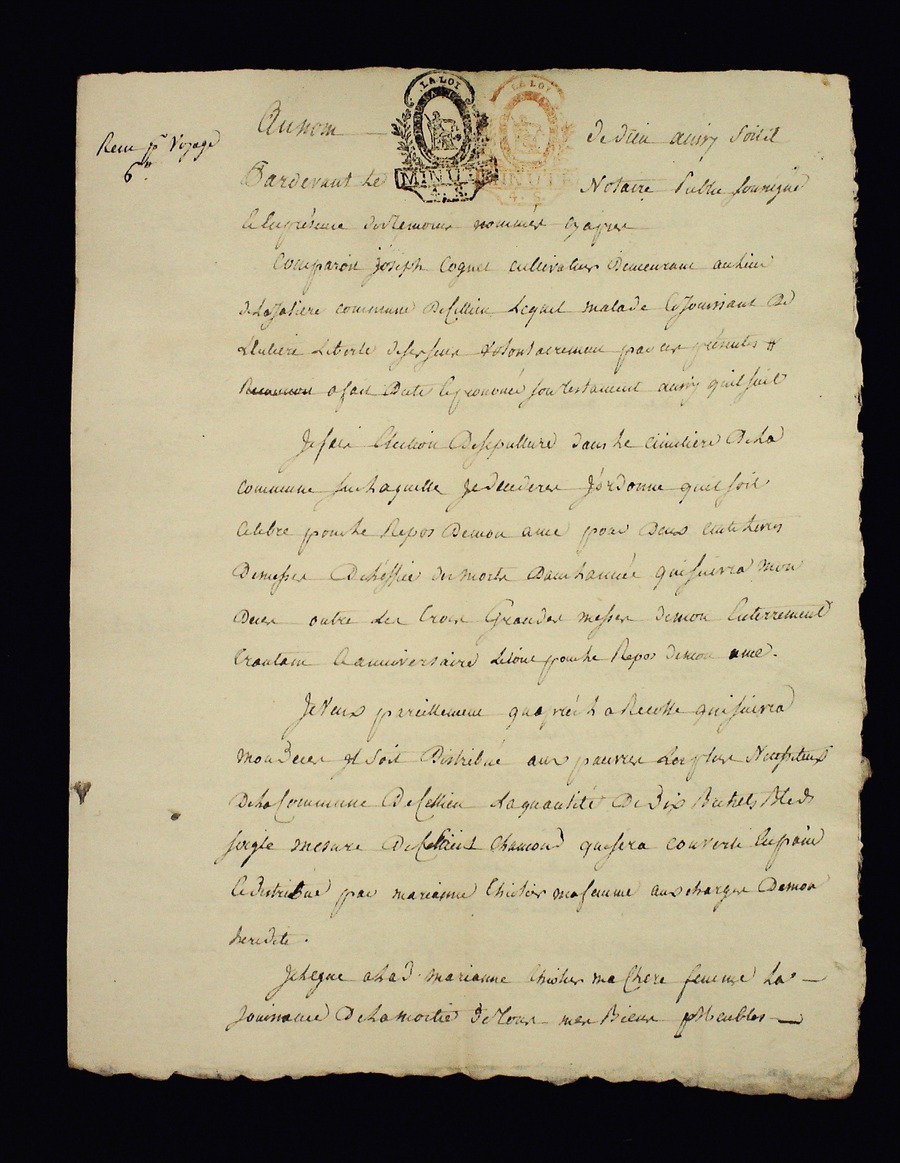 LA LOI LA LOI
Au nom de dieu ainsy soitil
Recu pr Voyage
6
MINUTE MINUTE
4. S. 4. S.
Pardevant Le Notaire Public soussigné
Et En présence des temoins nommés cy apres
Comparoit joseph Coquet cultivateur Demeurant au Lieu
de La jaliere commune De Cellieu Lequel malade Et jouissant De
L'Entiere Liberte de ses sens volontairement par ces présentes
a fait Dicté Et prononcé son testament ainsy quil suit
Je fais Election De sepulture dans Le cimitiere De La
commune sur Laquelle Je decederes J'ordonne quil soit
celebre pour Le Repos De mon ame pour Deux cents Livres
De messes De L'office des morts Dans L'année qui suivra mon
Deces outre Les trois Grandes messes De mon Enterrement
trantain Et anniversaire Le tout pour Le Repos De mon ame.
Je Veux pareillement qu'aprés La Recolte qui suivra
mon Deces Il soit Distribué aux pauvres Les plus Necessiteux
De La Commune De Cellieu La quantité De Dix Bichets Bled
seigle mesure De St Chamond qui sera converti En pain
Et distribué par marianne Thiolier ma femme aux charges De mon
heredité.
Je Legue a Lad. marianne Thiolier ma Chere femme La
Jouissance De La moitié De tous mes Biens Meubles